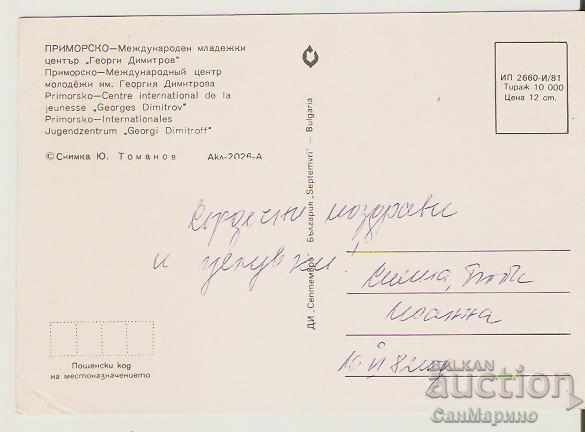 ПРИМОРСКО—Международен младежки
център „Георги Димитров"
Приморско—Международный центр
молодёжи им. Георгия Димитрова
Primorsko—Centre international de la
jeunesse „Georges Dimitrov"
Primorsko—Internationales
Jugendzentrum „Georgi Dimitroff"
© Снимка Ю. Томанов Акл-2026-А
ИП 2660-И/81
Тираж 10 000
Цена 12 ст.
ДИ „Септември" — България „Septemvri" — Bulgaria
Сърдечни поздрави
и целувки!
Иоанна
Пощенски код
на местоназначението
BALKAN
auction
СанМарино